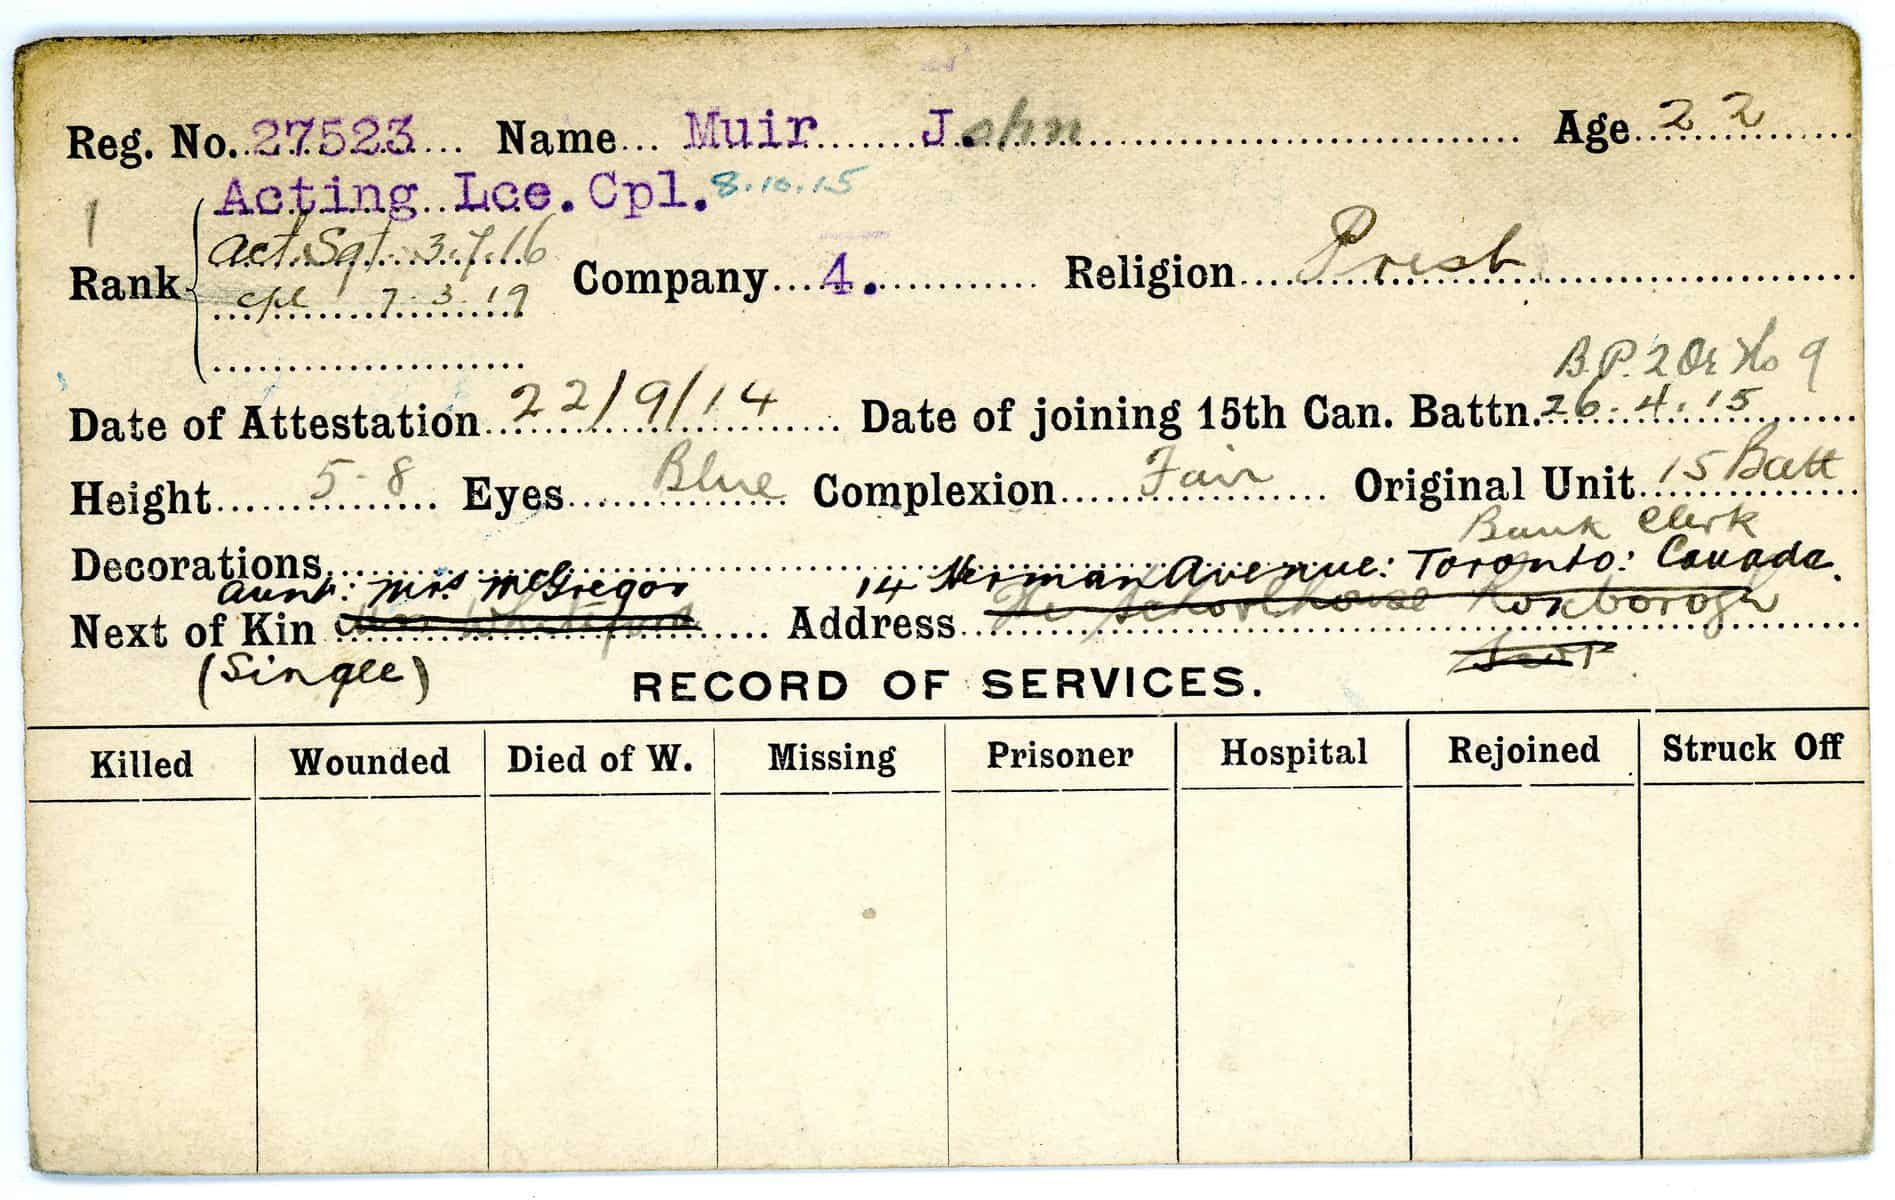 Reg. No. 27523 Name Muir John Age 22
Acting Lce. Cpl. 8.10.15
1
Act. Sgt. 3.7.16
Rank Company 4. Religion Presb
cpl 7.3.19
B.P. 2 Or No 9
Date of Attestation 22/9/14 Date of joining 15th Can. Battn. 26.4.15
Height 5-8 Eyes Blue Complexion Fair Original Unit 15 Batt
Bank Clerk
Decorations
Aunt: Mrs McGregor 14 Herman Avenue: Toronto: Canada.
Next of Kin Address The Schoolhouse Roxborogh
Scot
(Single)
RECORD OF SERVICES.
Killed Wounded Died of W. Missing Prisoner Hospital Rejoined Struck Off